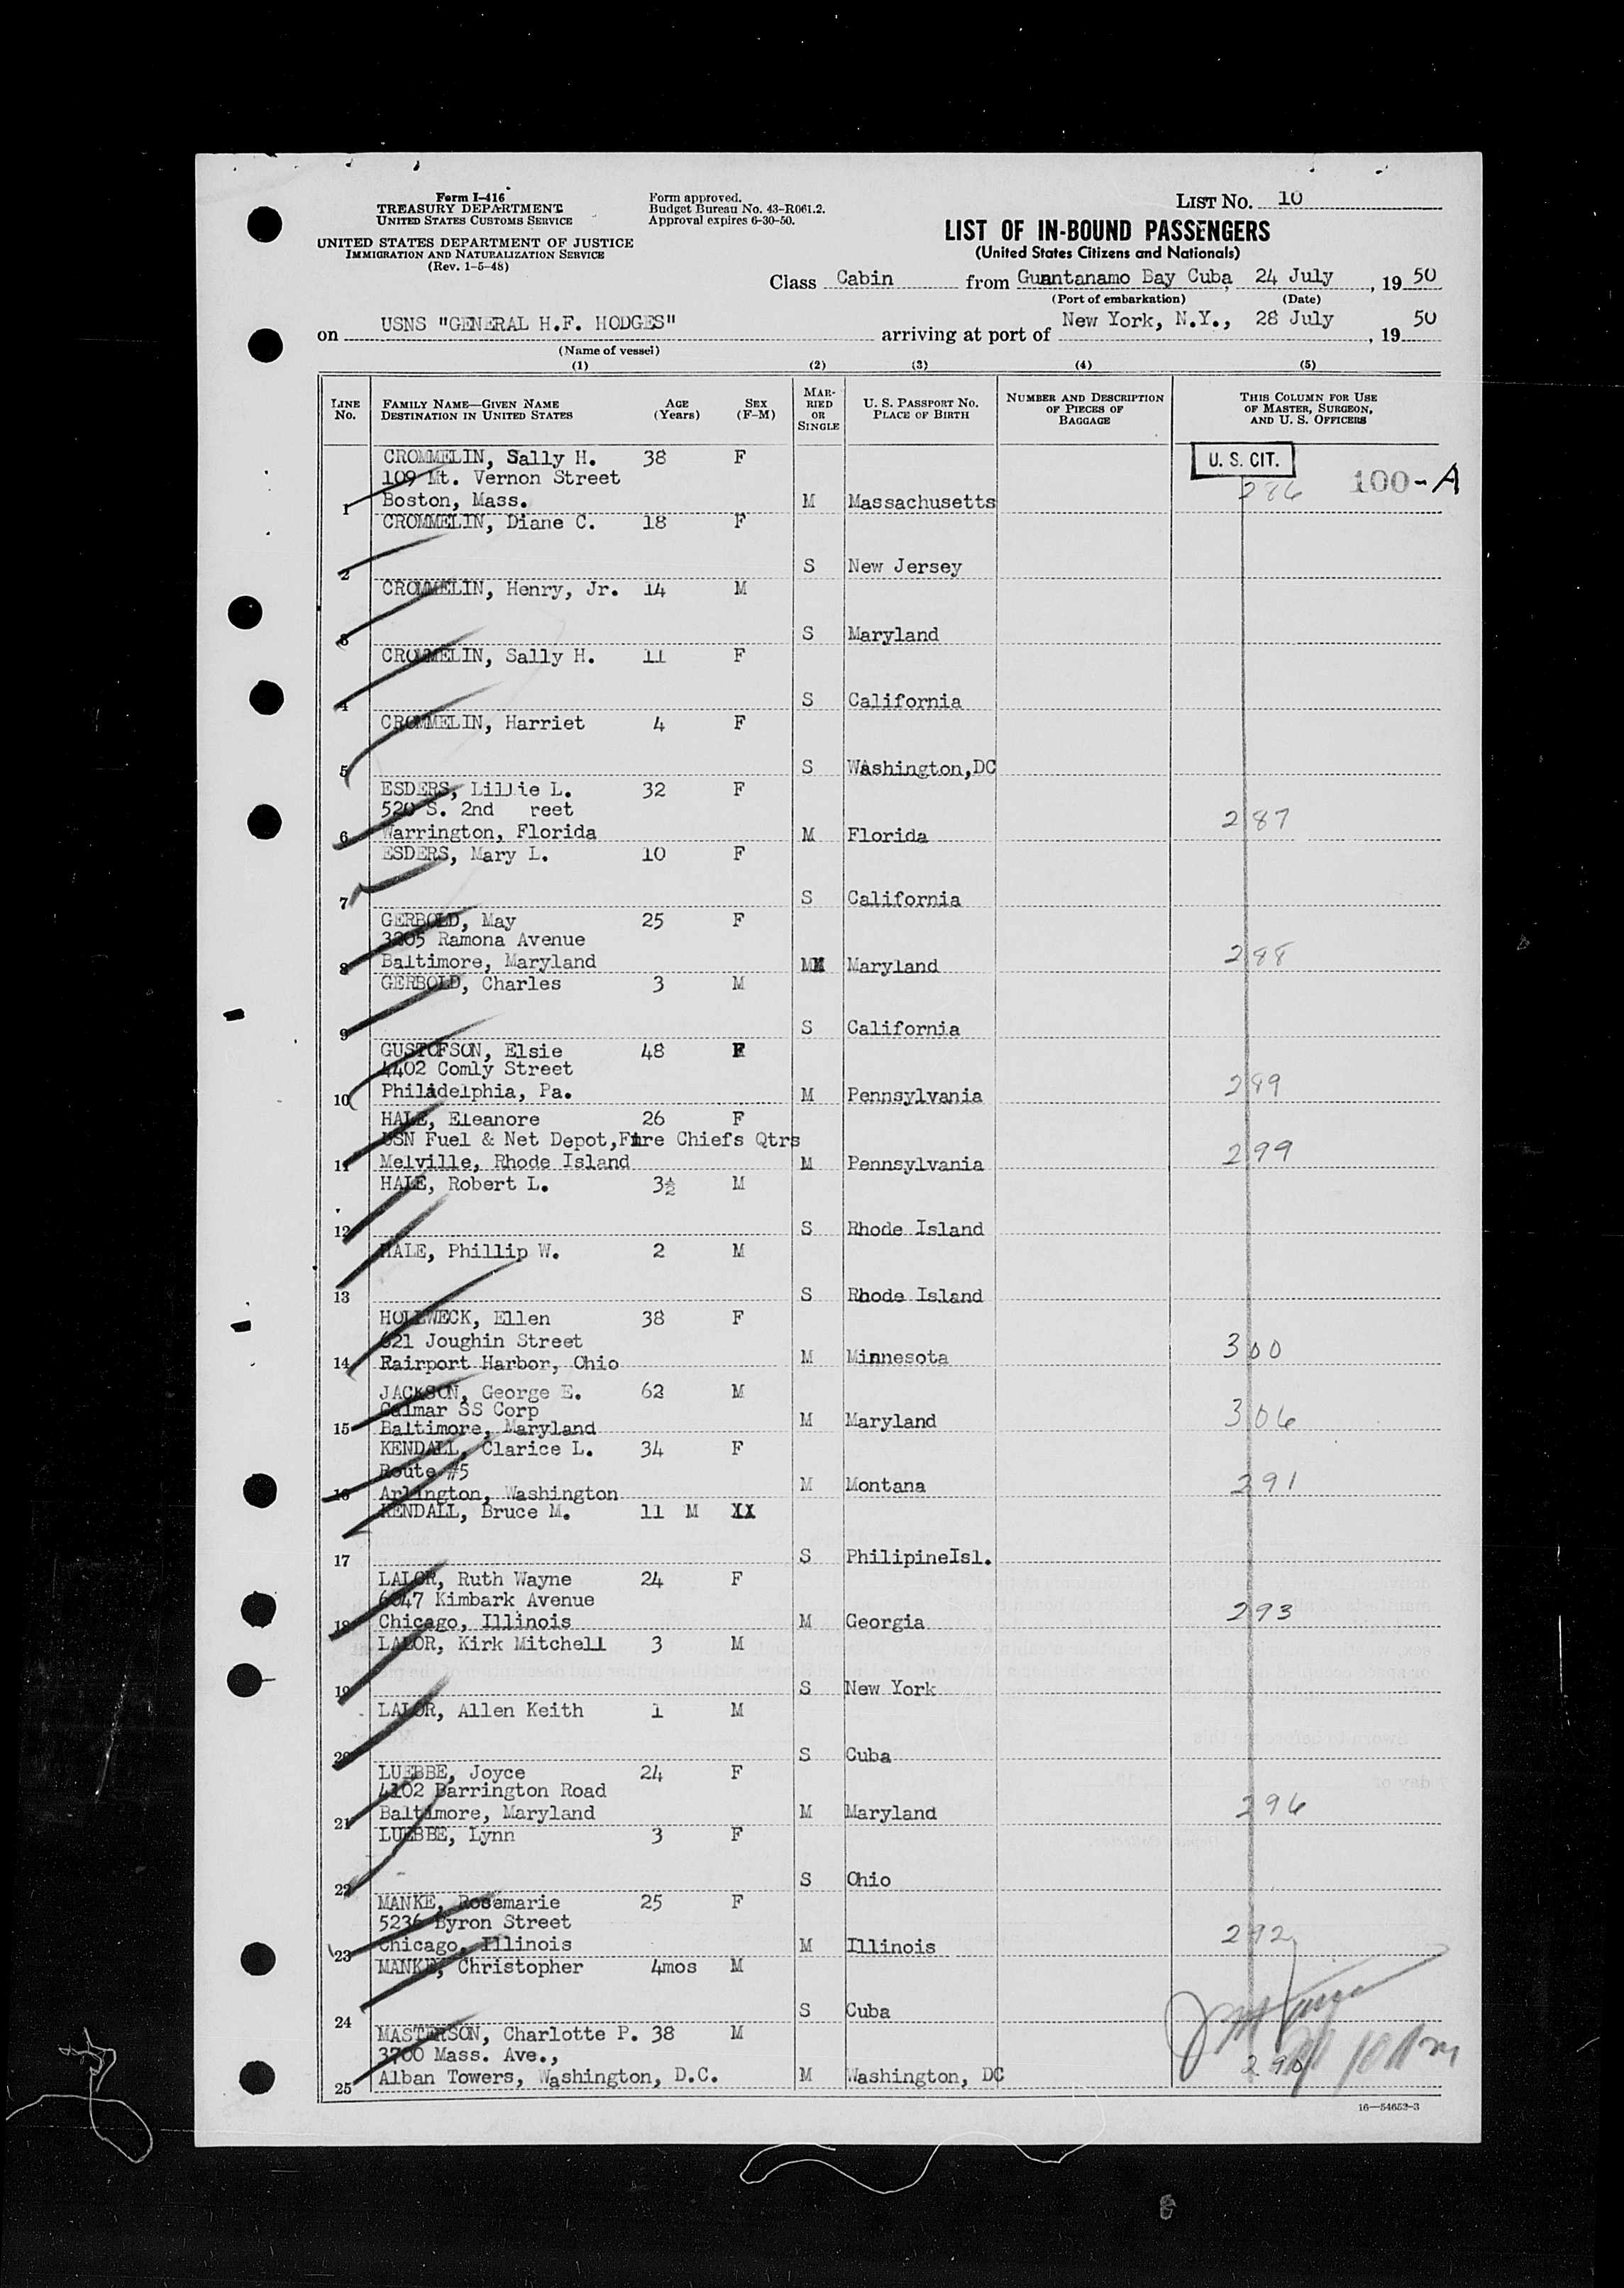 Form I-416
TREASURY DEPARTMENT
UNITED STATES CUSTOMS SERVICE
UNITED STATES DEPARTMENT OF JUSTICE
IMMIGRATION AND NATURALIZATION SERVICE
(Rev. 1-5-48)
Form approved.
Budget Bureau No. 43-R061.2.
Approval expires 6-30-50.
LIST NO. 10
LIST OF IN-BOUND PASSENGERS
(United States Citizens and Nationals)
Class Cabin from Guantanamo Bay Cuba, 24 July, 19 50
(Port of embarkation) (Date)
on USNS "GENERAL H.F. HODGES" arriving at port of New York, N.Y., 28 July, 19 50
(Name of vessel)
(1) (2) (3) (4) (5)
LINE No. FAMILY NAME—GIVEN NAME DESTINATION IN UNITED STATES AGE (Years) SEX (F-M) MARRIED OR SINGLE U. S. PASSPORT NO. PLACE OF BIRTH NUMBER AND DESCRIPTION OF PIECES OF BAGGAGE THIS COLUMN FOR USE OF MASTER, SURGEON, AND U. S. OFFICERS
CROMMELIN, Sally H. 38 F U. S. CIT.
109 Mt. Vernon Street 286 100-A
1 Boston, Mass. M Massachusetts
CROMMELIN, Diane C. 18 F
2 S New Jersey
CROMMELIN, Henry, Jr. 14 M
3 S Maryland
CROMMELIN, Sally H. 11 F
4 S California
CROMMELIN, Harriet 4 F
5 S Washington,DC
ESDERS, Lillie L. 32 F
520 S. 2nd reet 287
6 Warrington, Florida M Florida
ESDERS, Mary L. 10 F
7 S California
GERBOLD, May 25 F
3205 Ramona Avenue 288
8 Baltimore, Maryland M Maryland
GERBOLD, Charles 3 M
9 S California
GUSTOFSON, Elsie 48 F
4402 Comly Street 289
10 Philadelphia, Pa. M Pennsylvania
HALE, Eleanore 26 F
USN Fuel & Net Depot,Fire Chiefs Qtrs 299
11 Melville, Rhode Island M Pennsylvania
HALE, Robert L. 3½ M
12 S Rhode Island
HALE, Phillip W. 2 M
13 S Rhode Island
HOLLWECK, Ellen 38 F
621 Joughin Street 300
14 Rairport Harbor, Ohio M Minnesota
JACKSON, George E. 62 M
Calmar SS Corp 306
15 Baltimore, Maryland M Maryland
KENDALL, Clarice L. 34 F
Route #5
16 Arlington, Washington M Montana 291
KENDALL, Bruce M. 11 M XX
17 S PhilipineIsl.
LALOR, Ruth Wayne 24 F
6047 Kimbark Avenue
18 Chicago, Illinois M Georgia 293
LALOR, Kirk Mitchell 3 M
19 S New York
LALOR, Allen Keith 1 M
20 S Cuba
LUEBBE, Joyce 24 F
4102 Barrington Road
21 Baltimore, Maryland M Maryland 296
LUEBBE, Lynn 3 F
22 S Ohio
MANKE, Rosemarie 25 F
5236 Byron Street
23 Chicago, Illinois M Illinois 292
MANKE, Christopher 4mos M
24 S Cuba
MASTERSON, Charlotte P. 38 M
3700 Mass. Ave.,
25 Alban Towers, Washington, D.C. M Washington, DC 290
16—54652-3